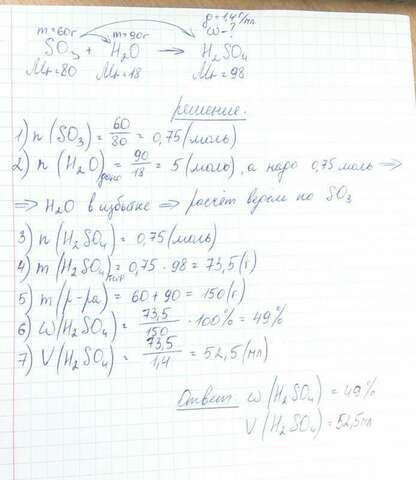 ρ=1,4 г/мл
m=60г m=90г ω-?
SO₃ + H₂O → H₂SO₄
Mr=80 Mr=18 Mr=98
решение.
1) n(SO₃) = 60/80 = 0,75(моль)
2) n(H₂O)дано = 90/18 = 5(моль), а надо 0,75 моль ⇒
⇒ H₂O в избытке ⇒ расчёт ведём по SO₃
3) n(H₂SO₄) = 0,75(моль)
4) m(H₂SO₄) = 0,75 · 98 = 73,5(г)
5) m(р-ра) = 60 + 90 = 150(г)
6) ω(H₂SO₄) = 73,5/150 · 100% = 49%
7) V(H₂SO₄) = 73,5/1,4 = 52,5(мл)
Ответ ω(H₂SO₄) = 49%
V(H₂SO₄) = 52,5мл